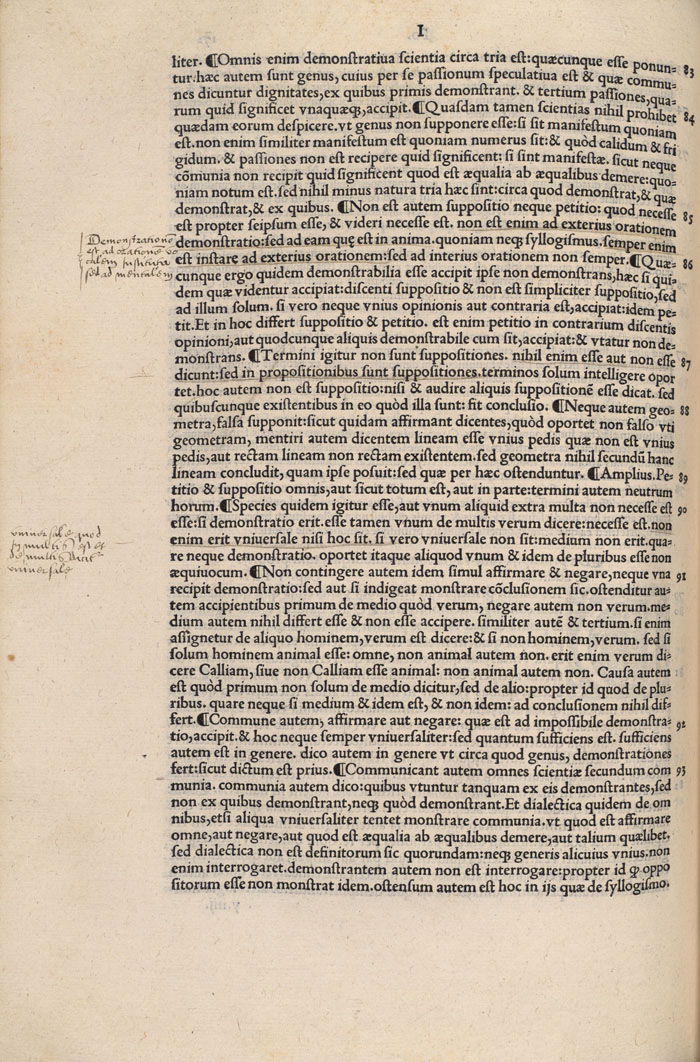 I
liter. ¶Omnis enim demonſtratiua ſcientia circa tria eſt:quæcunque eſſe ponun= 83
tur.hæc autem ſunt genus, cuius per ſe paſſionum ſpeculatiua eſt & quæ commu=
nes dicuntur dignitates,ex quibus primis demonſtrant. & tertium paſſiones,qua=
rum quid ſignificet vnaquæqꝫ,accipit.¶Quaſdam tamen ſcientias nihil prohibet 84
quædam eorum deſpicere.vt genus non ſupponere eſſe:ſi ſit manifeſtum quoniam
eſt.non enim ſimiliter manifeſtum eſt quoniam numerus ſit:& quòd calidum & fri
gidum. & paſſiones non eſt recipere quid ſignificent: ſi ſint manifeſtæ. ſicut neque
cōmunia non recipit quid ſignificent quod eſt æqualia ab æqualibus demere:quo=
niam notum eſt.ſed nihil minus natura tria hæc ſint:circa quod demonſtrat,& quæ
demonſtrat,& ex quibus. ¶Non eſt autem ſuppoſitio neque petitio: quod neceſſe 85
eſt propter ſeipſum eſſe, & videri neceſſe eſt. non eſt enim ad exterius orationem
Demonſtratione
eſt ad oratione vo
calem
ſed ad mentalem
demonſtratio:ſed ad eam quę eſt in anima.quoniam neqꝫ ſyllogiſmus.ſemper enim
eſt inſtare ad exterius orationem:ſed ad interius orationem non ſemper.¶Quæ= 86
cunque ergo quidem demonſtrabilia eſſe accipit ipſe non demonſtrans,hæc ſi qui=
dem quæ videntur accipiat:diſcenti ſuppoſitio & non eſt ſimpliciter ſuppoſitio,ſed
ad illum ſolum. ſi vero neque vnius opinionis aut contraria eſt,accipiat:idem pe=
tit.Et in hoc differt ſuppoſitio & petitio. eſt enim petitio in contrarium diſcentis
opinioni,aut quodcunque aliquis demonſtrabile cum ſit,accipiat:& vtatur non de=
monſtrans. ¶Termini igitur non ſunt ſuppoſitiones. nihil enim eſſe aut non eſſe 87
dicunt:ſed in propoſitionibus ſunt ſuppoſitiones.terminos ſolum intelligere opor
tet.hoc autem non eſt ſuppoſitio:niſi & audire aliquis ſuppoſitionē eſſe dicat. ſed
quibuſcunque exiſtentibus in eo quòd illa ſunt: fit concluſio. ¶Neque autem geo= 88
metra,falſa ſupponit:ſicut quidam affirmant dicentes,quòd oportet non falſo vti
geometram, mentiri autem dicentem lineam eſſe vnius pedis quæ non eſt vnius
pedis,aut rectam lineam non rectam exiſtentem.ſed geometra nihil ſecundū hanc
lineam concludit, quam ipſe poſuit:ſed quæ per hæc oſtenduntur. ¶Amplius.Pe= 89
titio & ſuppoſitio omnis,aut ſicut totum eſt,aut in parte:termini autem neutrum
horum.¶Species quidem igitur eſſe,aut vnum aliquid extra multa non neceſſe eſt 90
vniuerſale quod
in multis eſt et
de multis dicit~
vniuerſale
eſſe:ſi demonſtratio erit.eſſe tamen vnum de multis verum dicere:neceſſe eſt.non
enim erit vniuerſale niſi hoc ſit. ſi vero vniuerſale non ſit:medium non erit.qua=
re neque demonſtratio. oportet itaque aliquod vnum & idem de pluribus eſſe non
æquiuocum. ¶Non contingere autem idem ſimul affirmare & negare,neque vna 91
recipit demonſtratio:ſed aut ſi indigeat monſtrare cōcluſionem ſic.oſtenditur au=
tem accipientibus primum de medio quòd verum, negare autem non verum.me=
dium autem nihil differt eſſe & non eſſe accipere. ſimiliter autē & tertium.ſi enim
aſſignetur de aliquo hominem,verum eſt dicere:& ſi non hominem,verum. ſed ſi
ſolum hominem animal eſſe: omne, non animal autem non. erit enim verum di=
cere Calliam, ſiue non Calliam eſſe animal: non animal autem non. Cauſa autem
eſt quòd primum non ſolum de medio dicitur,ſed de alio:propter id quod de plu=
ribus. quare neque ſi medium & idem eſt, & non idem: ad concluſionem nihil dif=
fert.¶Commune autem, affirmare aut negare: quæ eſt ad impoſſibile demonſtra= 92
tio,accipit.& hoc neque ſemper vniuerſaliter:ſed quantum ſufficiens eſt. ſufficiens
autem eſt in genere. dico autem in genere vt circa quod genus, demonſtrationes
fert:ſicut dictum eſt prius.¶Communicant autem omnes ſcientiæ ſecundum com 93
munia. communia autem dico:quibus vtuntur tanquam ex eis demonſtrantes,ſed
non ex quibus demonſtrant,neqꝫ quòd demonſtrant.Et dialectica quidem de om
nibus,etſi aliqua vniuerſaliter tentet monſtrare communia.vt quod eſt affirmare
omne,aut negare,aut quod eſt æqualia ab æqualibus demere,aut talium quælibet.
ſed dialectica non eſt definitorum ſic quorundam:neqꝫ generis alicuius vnius.non
enim interrogaret.demonſtrantem autem non eſt interrogare:propter id ꝙ oppo
ſitorum eſſe non monſtrat idem.oſtenſum autem eſt hoc in ijs quæ de ſyllogiſmo.